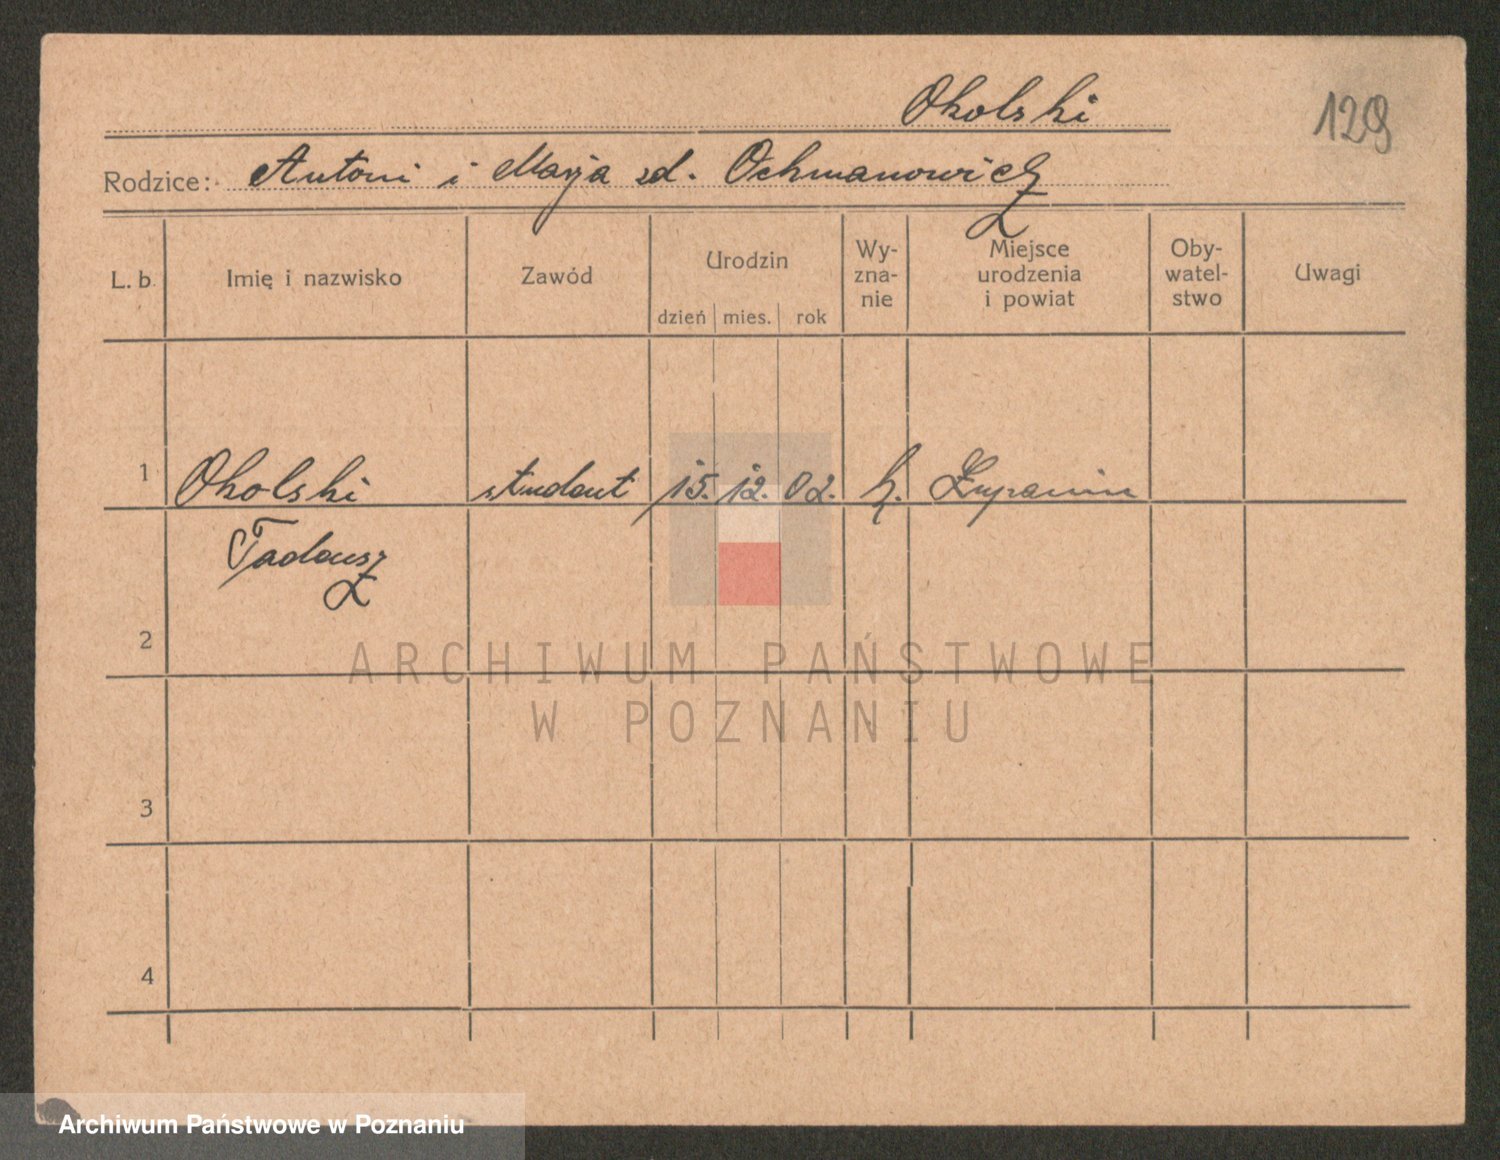 Okolski
129
Rodzice: Antoni i Marja zd. Ochmanowicz
L. b.
Imię i nazwisko
Zawód
Urodzin
dzień mies. rok
Wy-
zna-
nie
Miejsce
urodzenia
i powiat
Oby-
watel-
stwo
Uwagi
1 Okolski student 15. 12. 02. k.
Tadeusz
2
3
4
ARCHIWUM PAŃSTWOWE
W POZNANIU
Archiwum Państwowe w Poznaniu